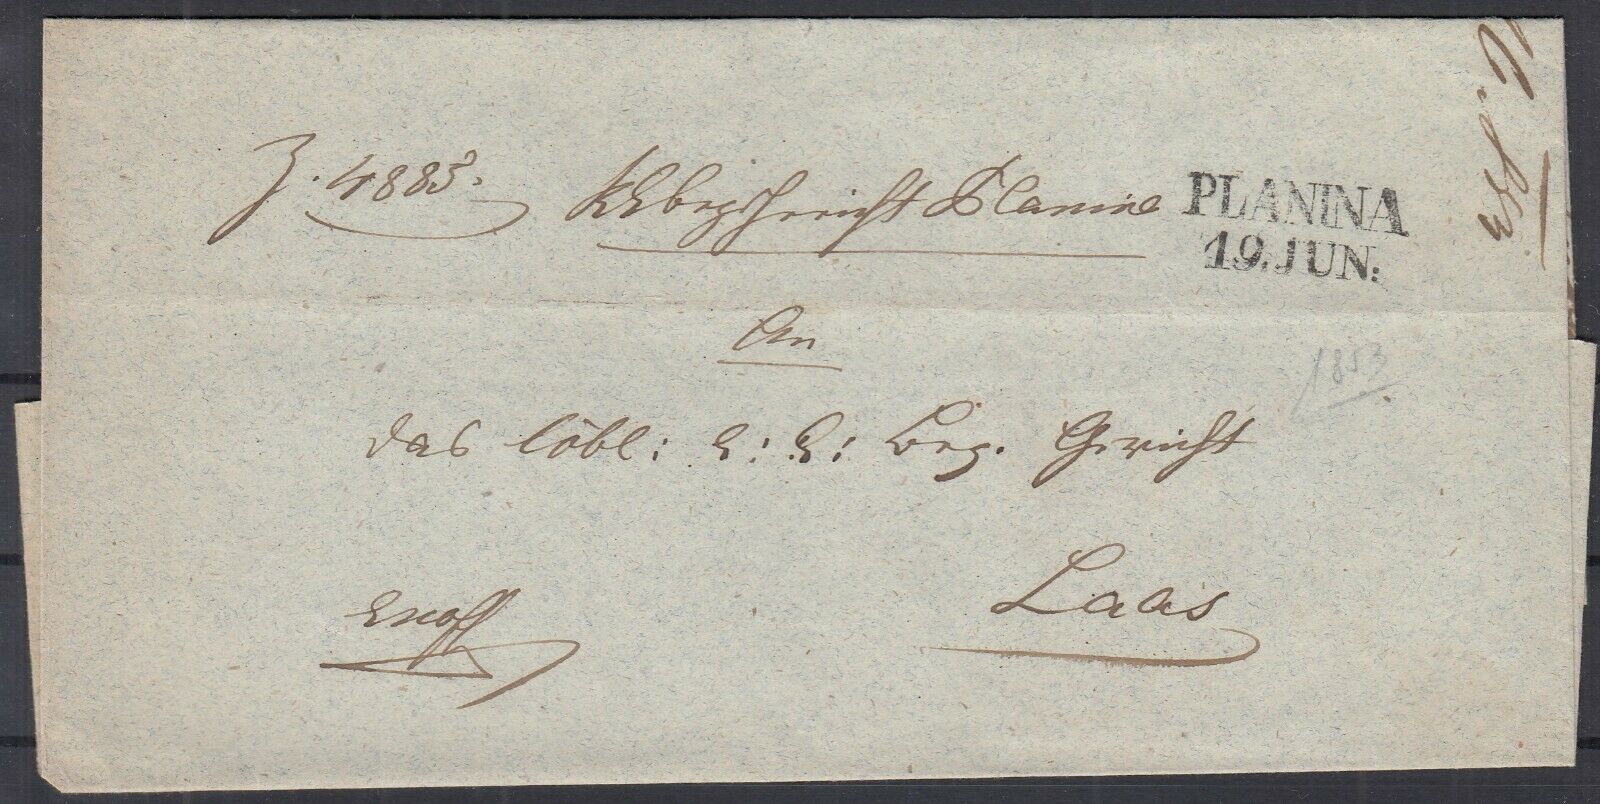 Z. 4883. KK bezgericht Planina
PLANINA
19. JUN:
An
1853
das löbl: k: k: Bez. Gericht
Laas
Exoff